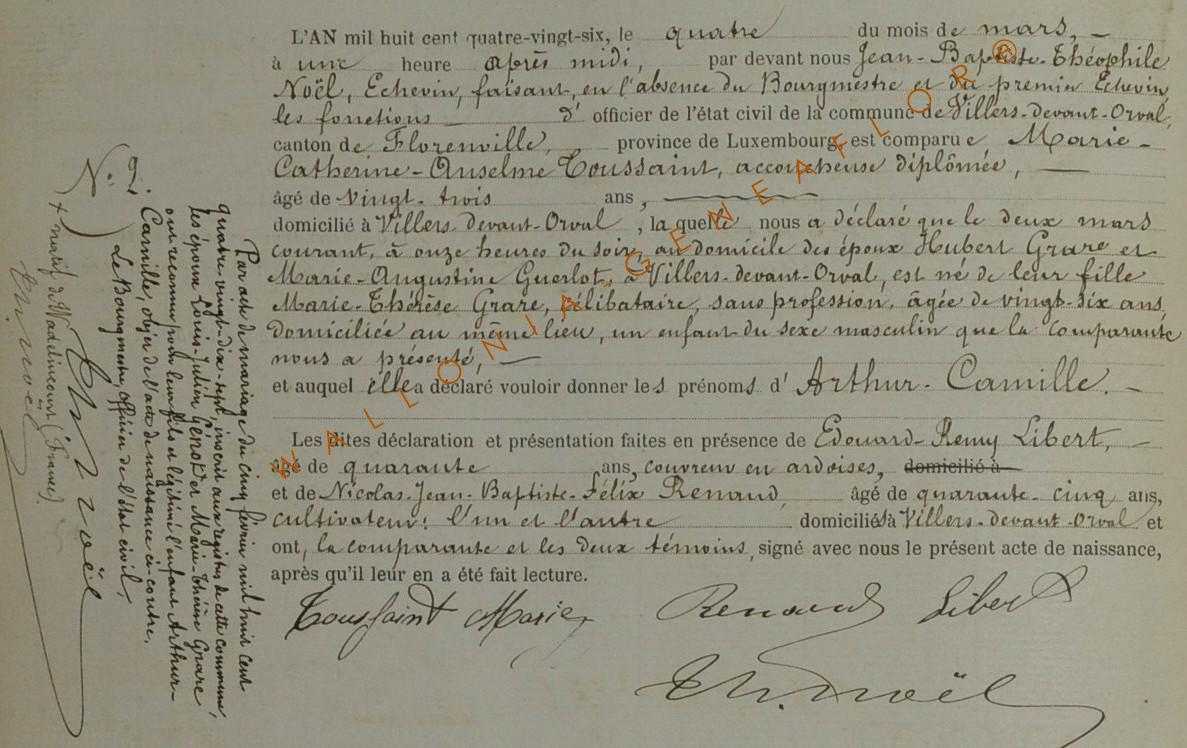 L'AN mil huit cent quatre-vingt-six, le quatre du mois de mars, —
à une heure après midi, par devant nous Jean-Baptiste-Théophile
Noël, Echevin, faisant, en l'absence du Bourgmestre et du premier Echevin,
les fonctions — d' officier de l'état civil de la commune de Villers-devant-Orval,
canton de Florenville, province de Luxembourg, est comparue Marie-
Catherine-Anselme Toussaint, accoucheuse diplômée, —
âgé de vingt-trois ans,
domicilié à Villers devant-Orval, la quelle nous a déclaré que le deux mars
courant, à onze heures du soir, au domicile des époux Hubert Grare et
Marie-Augustine Guerlot, à Villers-devant-Orval, est né de leur fille
Marie-Thérèse Grare, célibataire, sans profession, âgée de vingt-six ans,
domiciliée au même lieu, un enfant du sexe masculin que la comparante
nous a présenté, —
et auquel elle a déclaré vouloir donner les prénoms d' Arthur-Camille. —
Les dites déclaration et présentation faites en présence de Edouard-Remy Libert, —
âgé de quarante ans, couvreur en ardoises, domicilié à
et de Nicolas-Jean-Baptiste-Félix Renaud, âgé de quarante-cinq ans,
cultivateur; l'un et l'autre domiciliés à Villers-devant-Orval et
ont, la comparante et les deux témoins, signé avec nous le présent acte de naissance,
après qu'il leur en a été fait lecture.
Toussaint Marie Renaud Libert
Th. Noël
N.º 2.
Par acte de mariage du cinq février mil huit cent
quatre-vingt-dix-sept, inscrit aux registres de cette commune,
les époux Louis-Julien Génot et Marie-Thérèse Grare
ont reconnu pour leur fils et légitimé l'enfant Arthur-
Camille, objet de l'acte de naissance ci-contre.
Le Bourgmestre, officier de l'état civil,
Th. Noël
Th. Noël
WALLONIA GENEAFLOR®